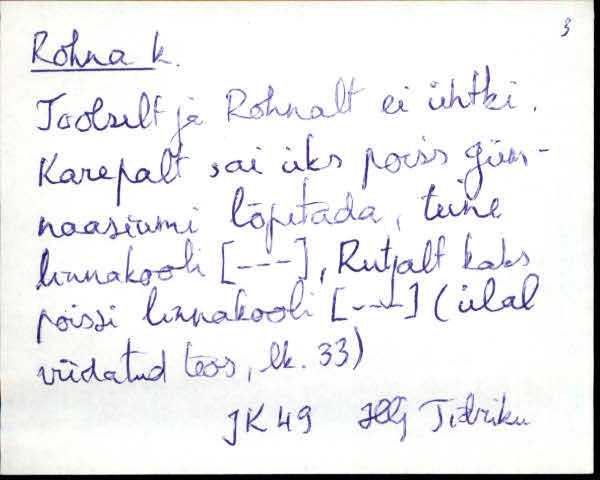 3
Rohna k.
Toolselt ja Rohnalt ei ühtki.
Karepalt sai üks poiss güm-
naasiumi lõpetada, teine
linnakooli [---], Rutjalt kaks
poissi linnakooli [---] (ülal
viidatud teos, lk. 33)
JK 49 Tidriku